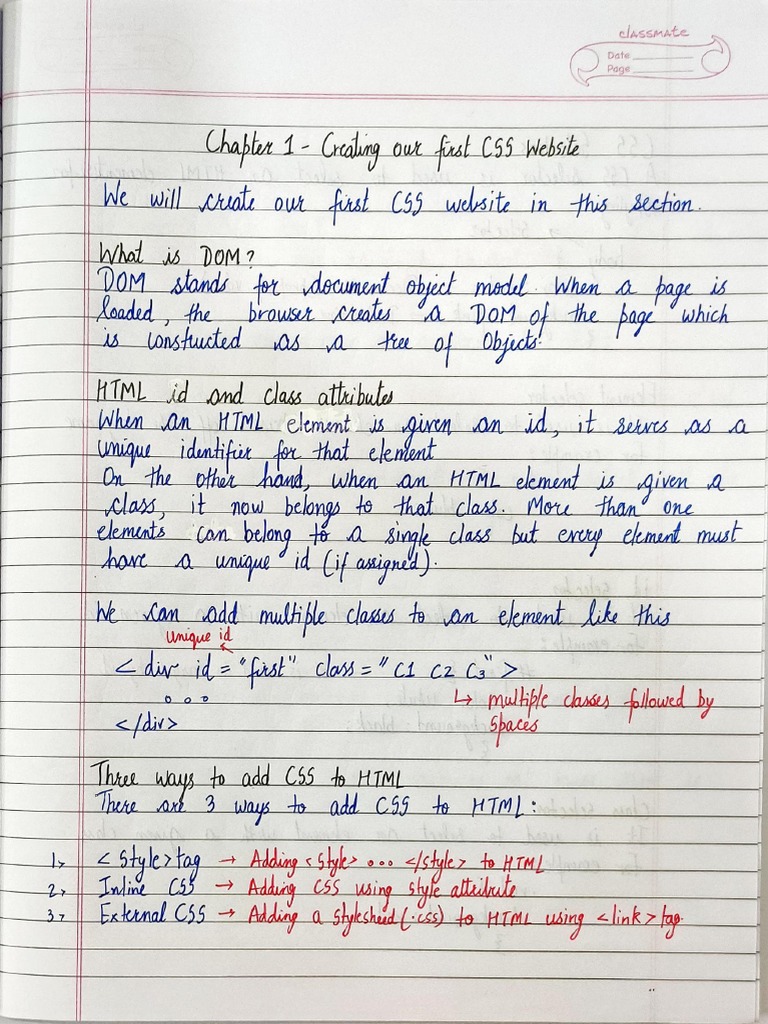 classmate
Date
Page
Chapter 1 - Creating our first CSS Website
We will create our first CSS website in this section.
What is DOM?
DOM stands for document object model. When a page is
loaded, the browser creates a DOM of the page which
is constructed as a tree of Objects.
HTML id and class attributes
When an HTML element is given an id, it serves as a
unique identifier for that element
On the other hand, when an HTML element is given a
class, it now belongs to that class. More than one
elements can belong to a single class but every element must
have a unique id (if assigned).
We can add multiple classes to an element like this
unique id
< div id = "first" class = "C1 C2 C3" >
↳ multiple classes followed by
∘ ∘ ∘
spaces
</div>
Three ways to add CSS to HTML
There are 3 ways to add CSS to HTML:
1> < Style> tag → Adding <style> ∘∘∘ </style> to HTML
2> Inline CSS → Adding CSS using style attribute
3> External CSS → Adding a stylesheed (.css) to HTML using <link> tag.